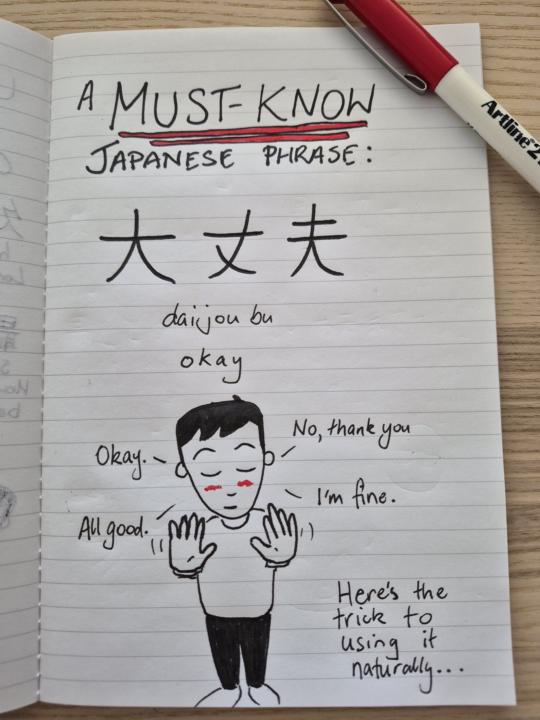 A MUST-KNOW
JAPANESE PHRASE:
大丈夫
daijou bu
okay
No, thank you
Okay.
I'm fine.
All good.
Here's the
trick to
using it
naturally...
Artline